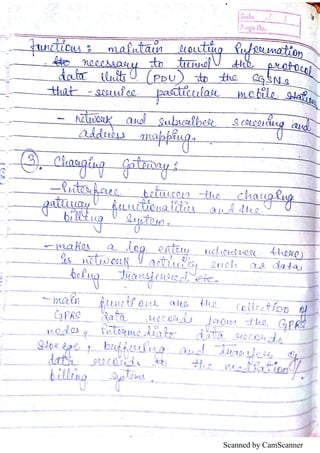 Date
Page No.
Functions : maintain routing information
necessary to tunnel the protocol
data Units (PDU) to the SGSNs
that service particular mobile station
- network and subscriber screening and
address mapping.
③. Charging Gateway :
- Interface between the charging
gateway functionalities and the
billing system.
- makes a log entry whenever there
is network activity such as data
being transferred, etc.
- main functions are the collection of
GPRS data records from the GPRS
nodes, intermediate data records
storage, buffering and transfer of
data records to the mediation /
billing system.
Scanned by CamScanner